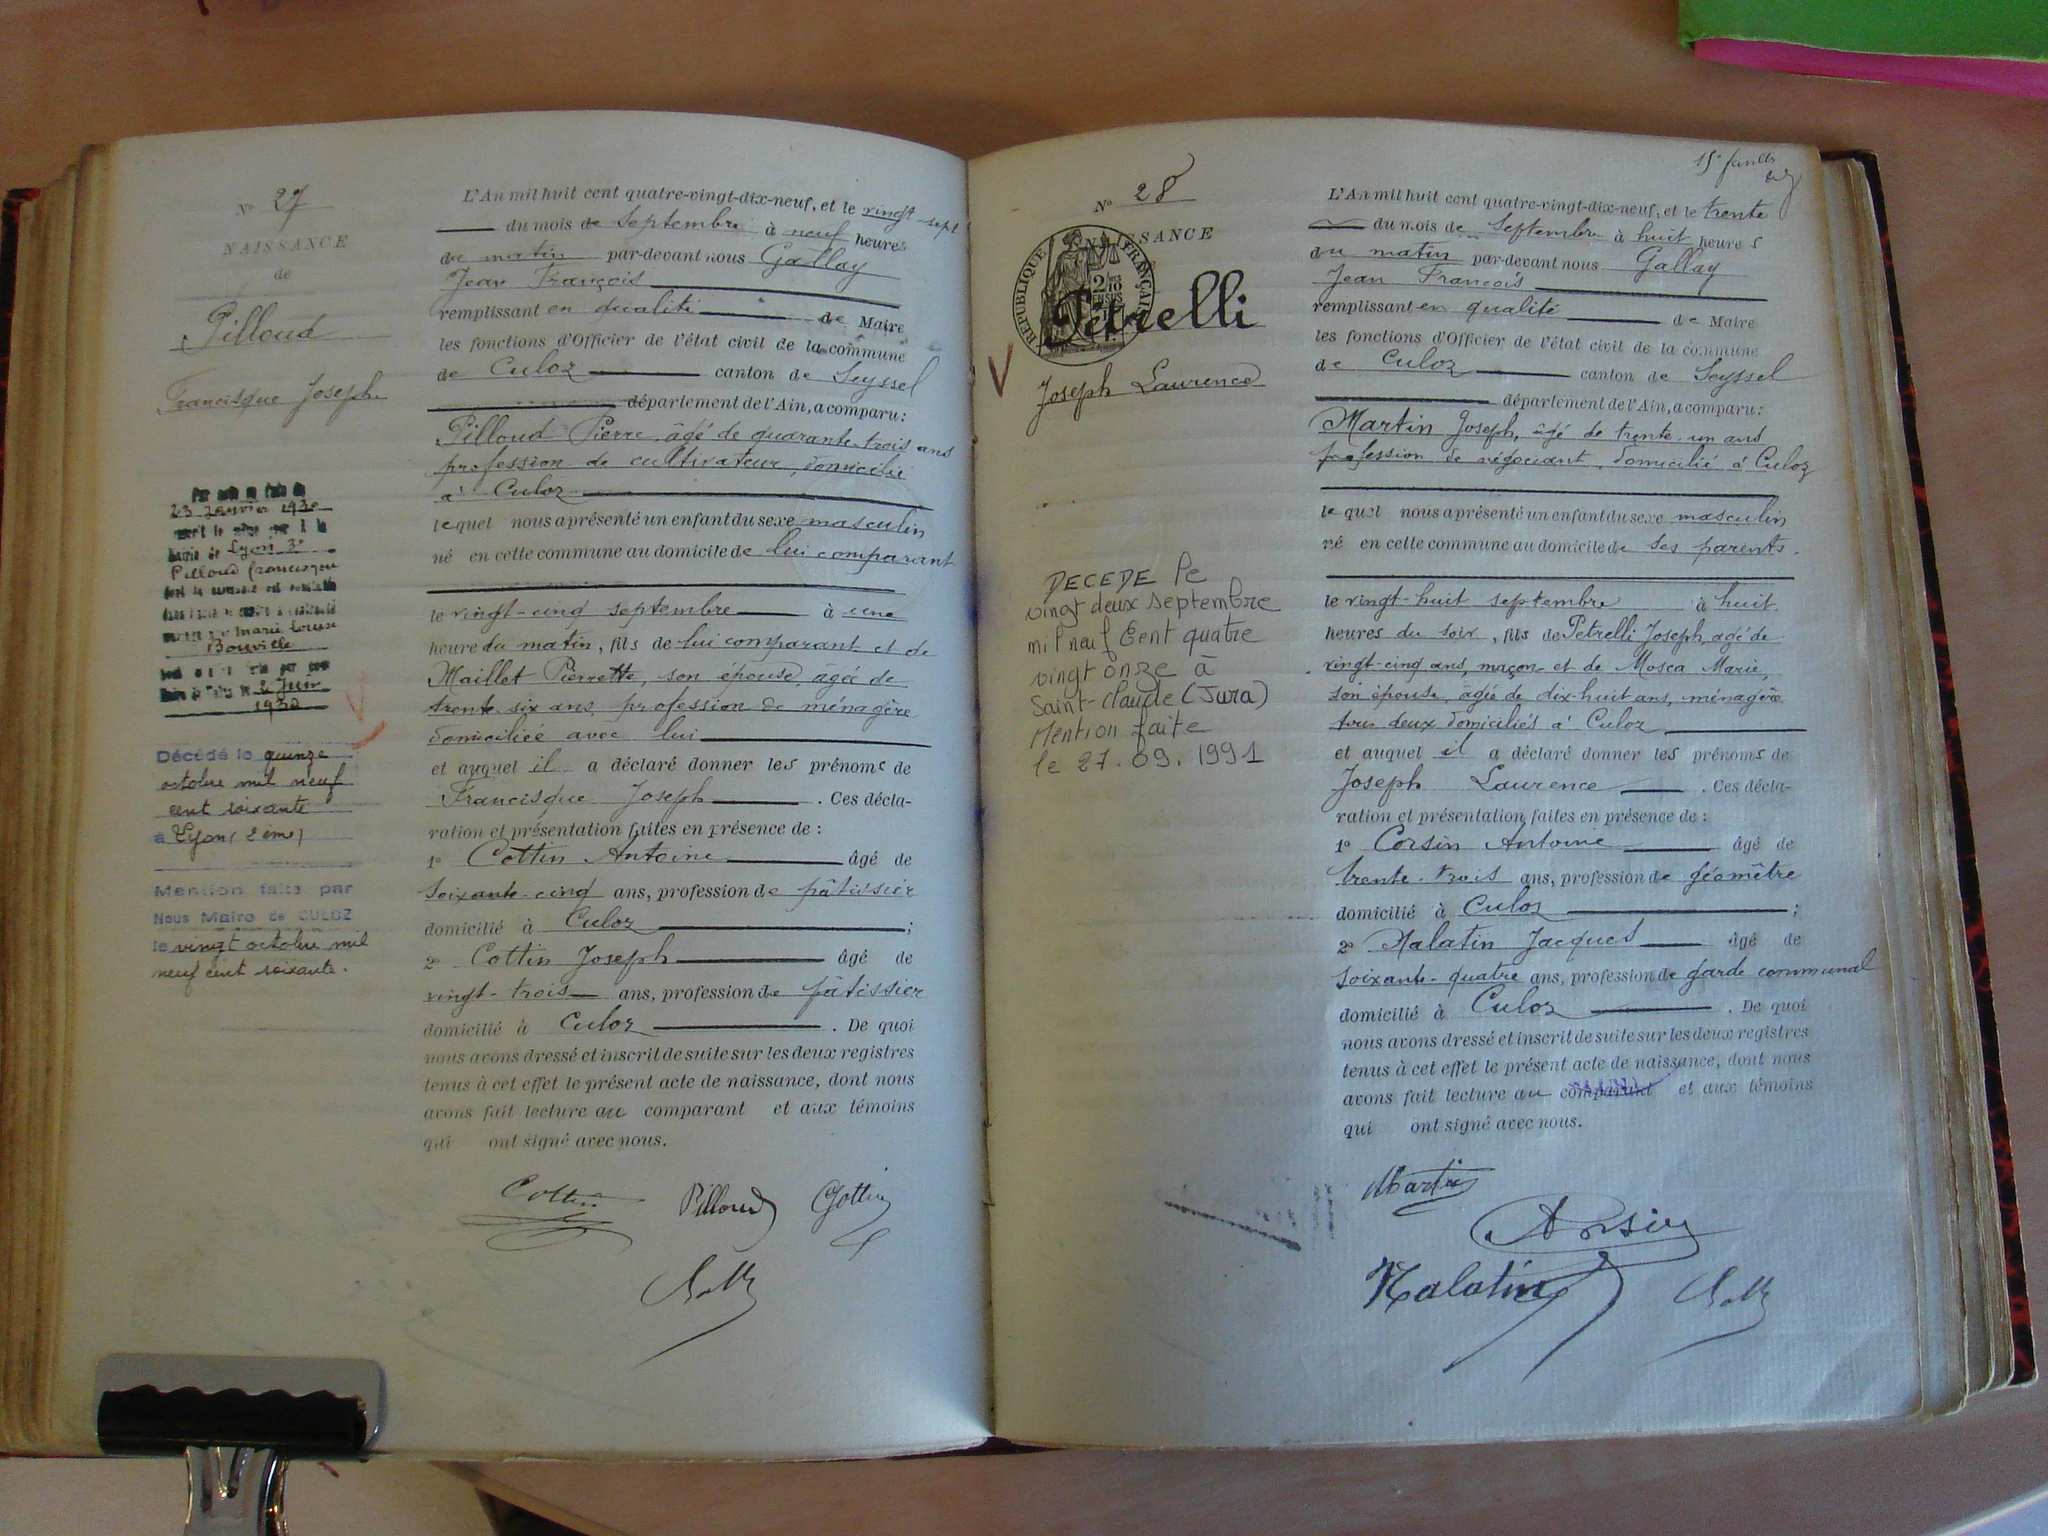 N° 27
NAISSANCE
de
Pilloud
Francisque Joseph
23 Janvier 1930
mairie de Lyon 3e
Pilloud Francisque
Marie Louise
Bouville
2 Juin
1930
Décédé le quinze
octobre mil neuf
cent soixante
à Lyon (2ème)
Mention faite par
Nous Maire de CULOZ
le vingt octobre mil
neuf cent soixante.
L'An mil huit cent quatre-vingt-dix-neuf, et le vingt-sept
du mois de Septembre à neuf heures
du matin par-devant nous Gallay
Jean François
remplissant en qualité de Maire
les fonctions d'Officier de l'état civil de la commune
de Culoz canton de Seyssel
département de l'Ain, a comparu :
Pilloud Pierre, âgé de quarante-trois ans
profession de cultivateur, domicilié
à Culoz
lequel nous a présenté un enfant du sexe masculin
né en cette commune au domicile de lui comparant
le vingt-cinq septembre à une
heure du matin, fils de lui comparant et de
Maillet Pierrette, son épouse, âgée de
trente-six ans, profession de ménagère
domiciliée avec lui
et auquel il a déclaré donner les prénoms de
Francisque Joseph. Ces décla-
ration et présentation faites en présence de :
1° Cottin Antoine âgé de
soixante-cinq ans, profession de pâtissier
domicilié à Culoz ;
2° Cottin Joseph âgé de
vingt-trois ans, profession de pâtissier
domicilié à Culoz. De quoi
nous avons dressé et inscrit de suite sur les deux registres
tenus à cet effet le présent acte de naissance, dont nous
avons fait lecture au comparant et aux témoins
qui ont signé avec nous.
Cottin Pilloud Cottin
15e
N° 28
NAISSANCE
RÉPUBLIQUE FRANÇAISE
Petrelli
Joseph Laurence
DECEDE le
vingt deux septembre
mil neuf cent quatre
vingt onze à
Saint-Claude (Jura)
Mention faite
le 27.09.1991
L'An mil huit cent quatre-vingt-dix-neuf, et le trente
du mois de Septembre à huit heures
du matin par-devant nous Gallay
Jean François
remplissant en qualité de Maire
les fonctions d'Officier de l'état civil de la commune
de Culoz canton de Seyssel
département de l'Ain, a comparu :
Martin Joseph, âgé de trente-un ans
profession de négociant, domicilié à Culoz
lequel nous a présenté un enfant du sexe masculin
né en cette commune au domicile de ses parents.
le vingt-huit septembre à huit
heures du soir, fils de Petrelli Joseph, agé de
vingt-cinq ans, maçon et de Mosca Marie,
son épouse, âgée de dix-huit ans, ménagère
tous deux domiciliés à Culoz
et auquel il a déclaré donner les prénoms de
Joseph Laurence. Ces décla-
ration et présentation faites en présence de :
1° Corsin Antoine âgé de
trente-trois ans, profession de géomètre
domicilié à Culoz ;
2° Malatin Jacques âgé de
soixante-quatre ans, profession de garde communal
domicilié à Culoz. De quoi
nous avons dressé et inscrit de suite sur les deux registres
tenus à cet effet le présent acte de naissance, dont nous
avons fait lecture au comparant et aux témoins
qui ont signé avec nous.
Martin
Corsin
Malatin